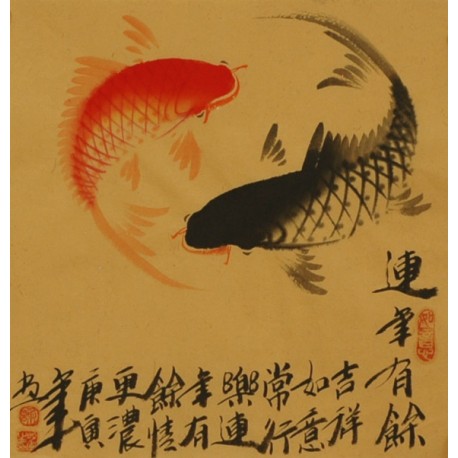 連年有餘
吉祥
如意
常行
樂連
年有
餘情
更濃
庚寅
年